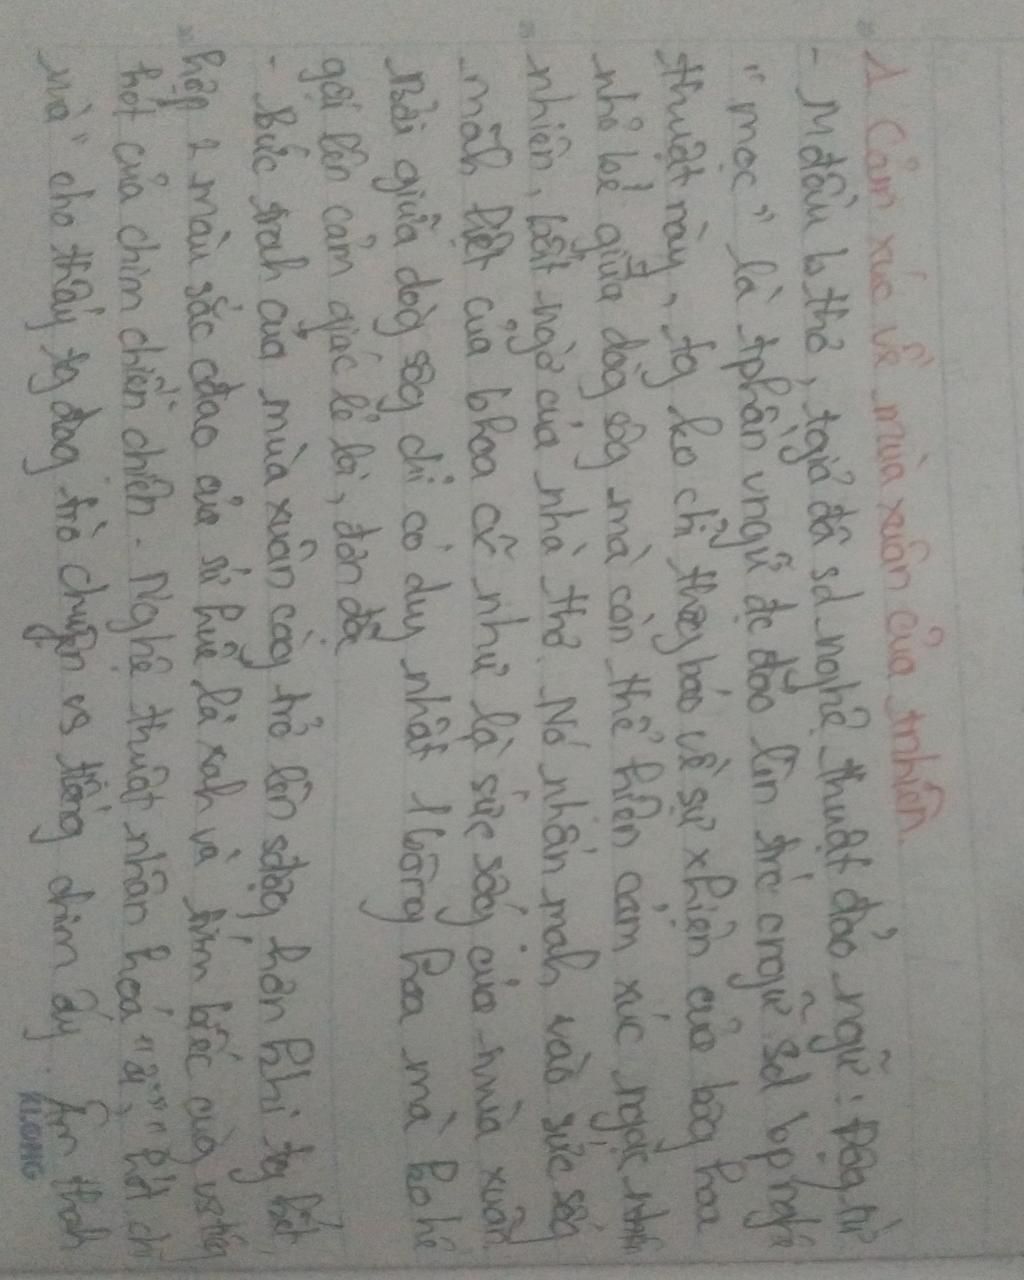 1 Cảm xúc về mùa xuân của tnhiên.
- Mđầu b thơ, tgiả đã sd nghệ thuật đảo ngữ: Độg từ
"mọc" là tphần vngữ đc đảo lên trc cngữ. Sd bp nghệ
thuật này, tg ko chỉ thôg báo về sự xhiện của bôg hoa
nhỏ bé giữa dòg sôg mà còn thể hiện cảm xúc ngạc nhiên
nhiên, bất ngờ của nhà thơ. Nó nhấn mah vào sức sốg
mãh liệt của bhoa cũ như là sức sốg của mùa xuân.
Nơi giữa dòg sôg chỉ có duy nhất 1 bông hoa mà ko hề
gợi lên cảm giác lẻ loi, đơn độc
- Bức trah của mùa xuân càg trở lên sđộg hơn khi tg kết
hợp 2 màu sắc cđao của sứ huế là xah và tím biếc cùg vs tiếg
hót của chim chiền chiện. Nghệ thuật nhân hoá "ơi", "hót chi
mà" cho thấy tg đag trò chuyện vs tiếng chim ấy. Âm thah
KLONG